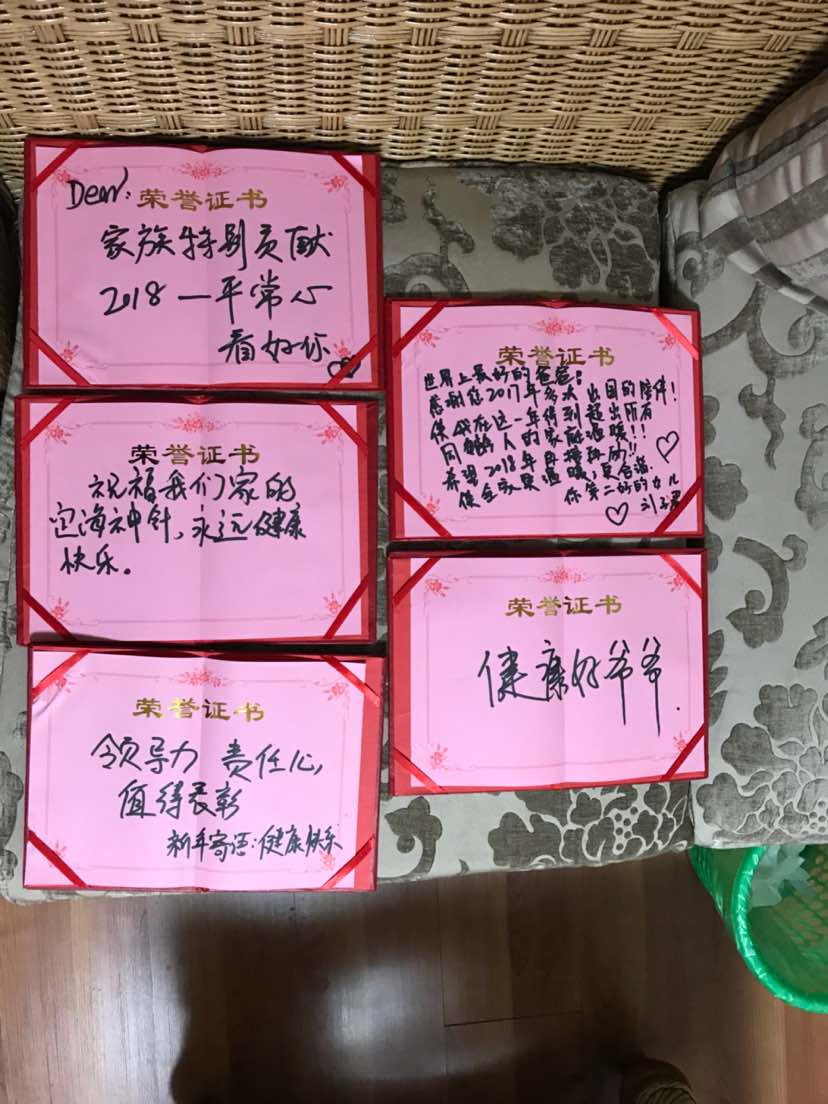 Dear:
荣誉证书
家族特别贡献
2018一平常心
看好你
荣誉证书
祝福我们家的
定海神针，永远健康
快乐。
荣誉证书
领导力 责任心，
值得表彰
新年寄语：健康快乐
荣誉证书
世界上最好的爸爸：
感谢您2017年多次出国的陪伴！
使我在这一年得到超出所有
同龄人的家庭温暖！！
希望2018年再接再厉！！
使全家更温暖，更合谐.
你第二好的女儿
荣誉证书
健康好爷爷.